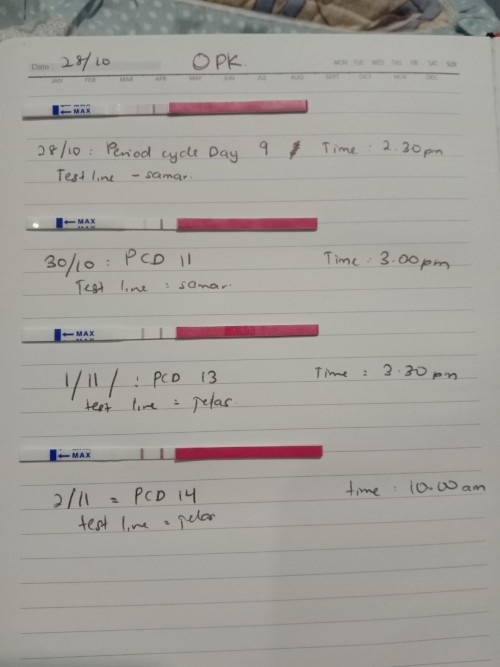 Date : 28/10 OPK.
MON TUE WED THU FRI SAT SUN
JAN FEB MAR APR MAY JUN JUL AUG SEPT OCT NOV DEC
← MAX
28/10 : Period cycle Day 9 Time : 2.30pm
Test line - samar.
← MAX
30/10 : PCD 11 Time : 3.00pm
Test line : samar.
← MAX
1/11/ : PCD 13 Time : 3.30pm
test line = jelas.
← MAX
2/11 = PCD 14 time : 10.00am
test line = jelas